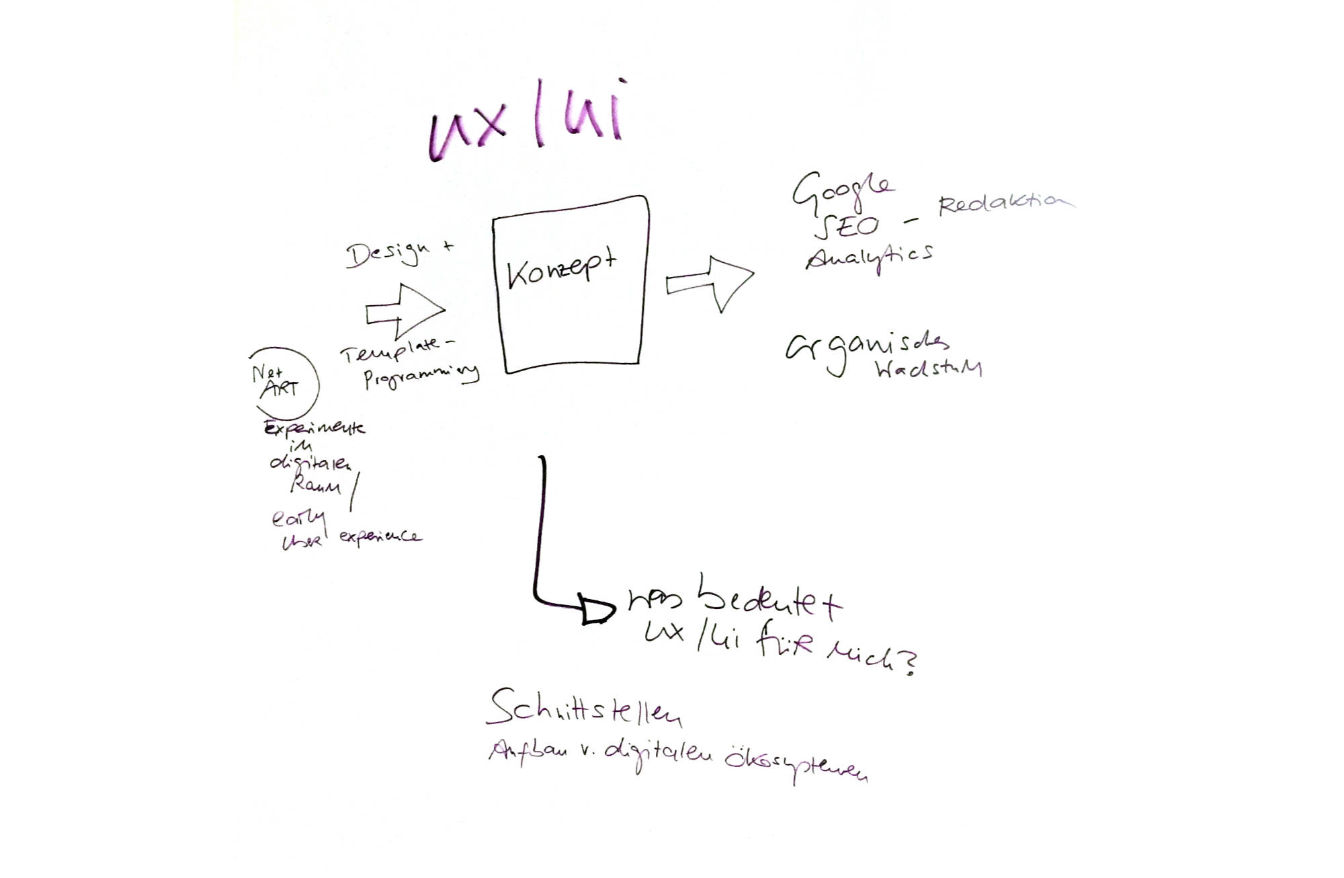 ux/ui
Design +
Template-
Programming
Net
ART
Experimente
im
digitalen
Raum /
early
User experience
Konzept
Google
SEO - Redaktion
Analytics
organisches
Wachstum
was bedeutet
ux/ui für mich?
Schnittstellen
Aufbau v. digitalen Ökosystemen